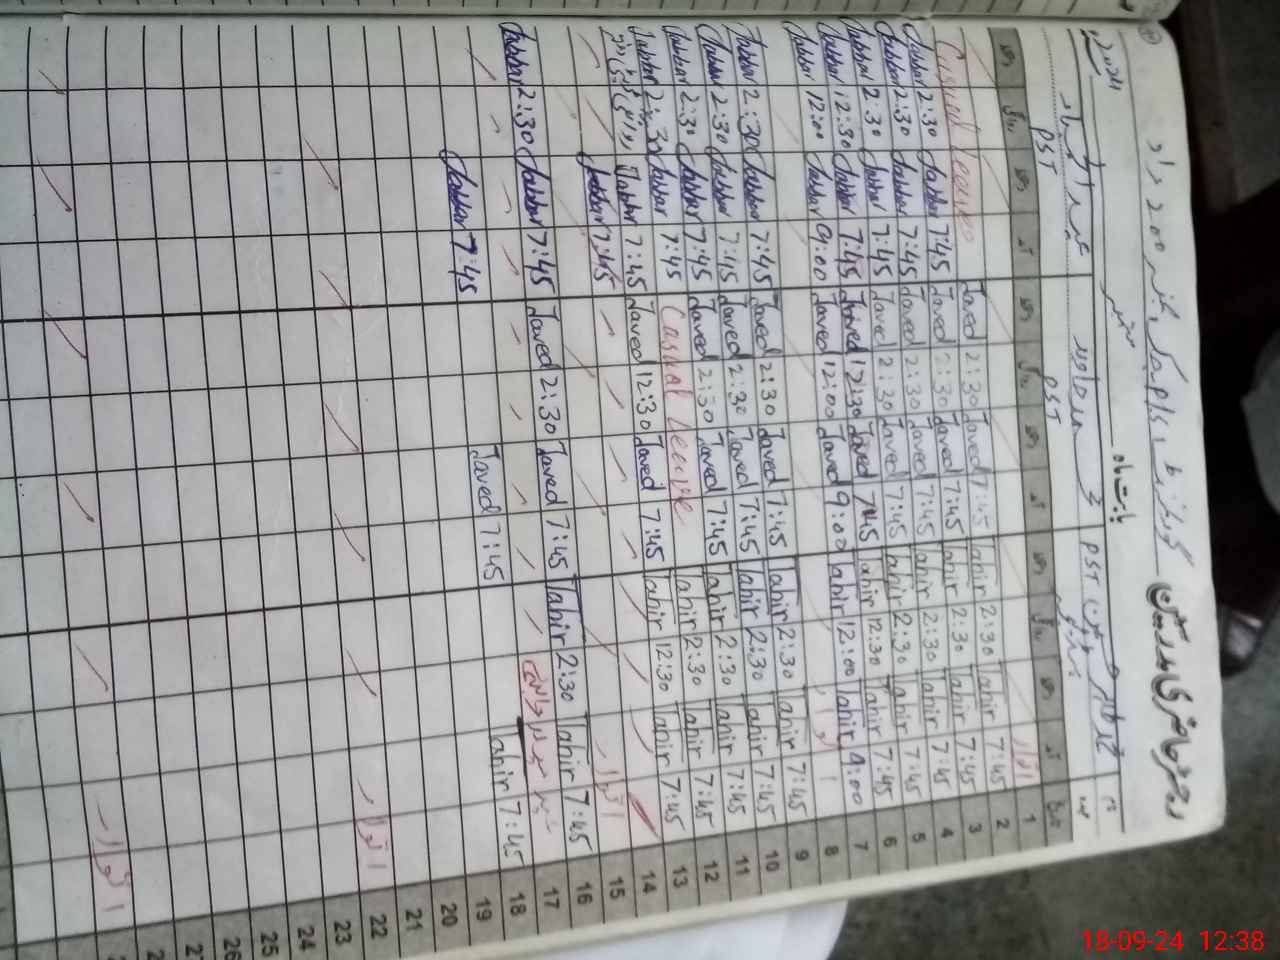 رجسٹر حاضری مدرسین گورنمنٹ
بابت ماہ ستمبر 2024
PST PST PST
1 اتوار
Casual Leave Javed 2:30 Javed 7:45 Tahir 2:30 Tahir 7:45 2
Jabbar 2:30 Jabbar 7:45 Javed 2:30 Javed 7:45 Tahir 2:30 Tahir 7:45 3
Jabbar 2:30 Jabbar 7:45 Javed 2:30 Javed 7:45 Tahir 2:30 Tahir 7:45 4
Jabbar 2:30 Jabbar 7:45 Javed 2:30 Javed 7:45 Tahir 2:30 Tahir 7:45 5
Jabbar 12:30 Jabbar 7:45 Javed 12:30 Javed 7:45 Tahir 12:30 Tahir 7:45 6
Jabbar 12:00 Jabbar 9:00 Javed 12:00 Javed 9:00 Tahir 12:00 Tahir 9:00 7
8 اتوار
Jabbar 2:30 Jabbar 7:45 Javed 2:30 Javed 7:45 Tahir 2:30 Tahir 7:45 9
Jabbar 2:30 Jabbar 7:45 Javed 2:30 Javed 7:45 Tahir 2:30 Tahir 7:45 10
Jabbar 2:30 Jabbar 7:45 Javed 2:30 Javed 7:45 Tahir 2:30 Tahir 7:45 11
Jabbar 2:30 Jabbar 7:45 Casual Leave Tahir 2:30 Tahir 7:45 12
Jabbar 7:45 Javed 12:30 Javed 7:45 Tahir 12:30 Tahir 7:45 13
Jabbar 7:45 14
15 اتوار
Jabbar 2:30 Jabbar 7:45 Javed 2:30 Javed 7:45 Tahir 2:30 Tahir 7:45 16
17
Jabbar 7:45 Javed 7:45 Tahir 7:45 18
19
20
21
22 اتوار
23
24
25
26
27
اتوار
18-09-24 12:38